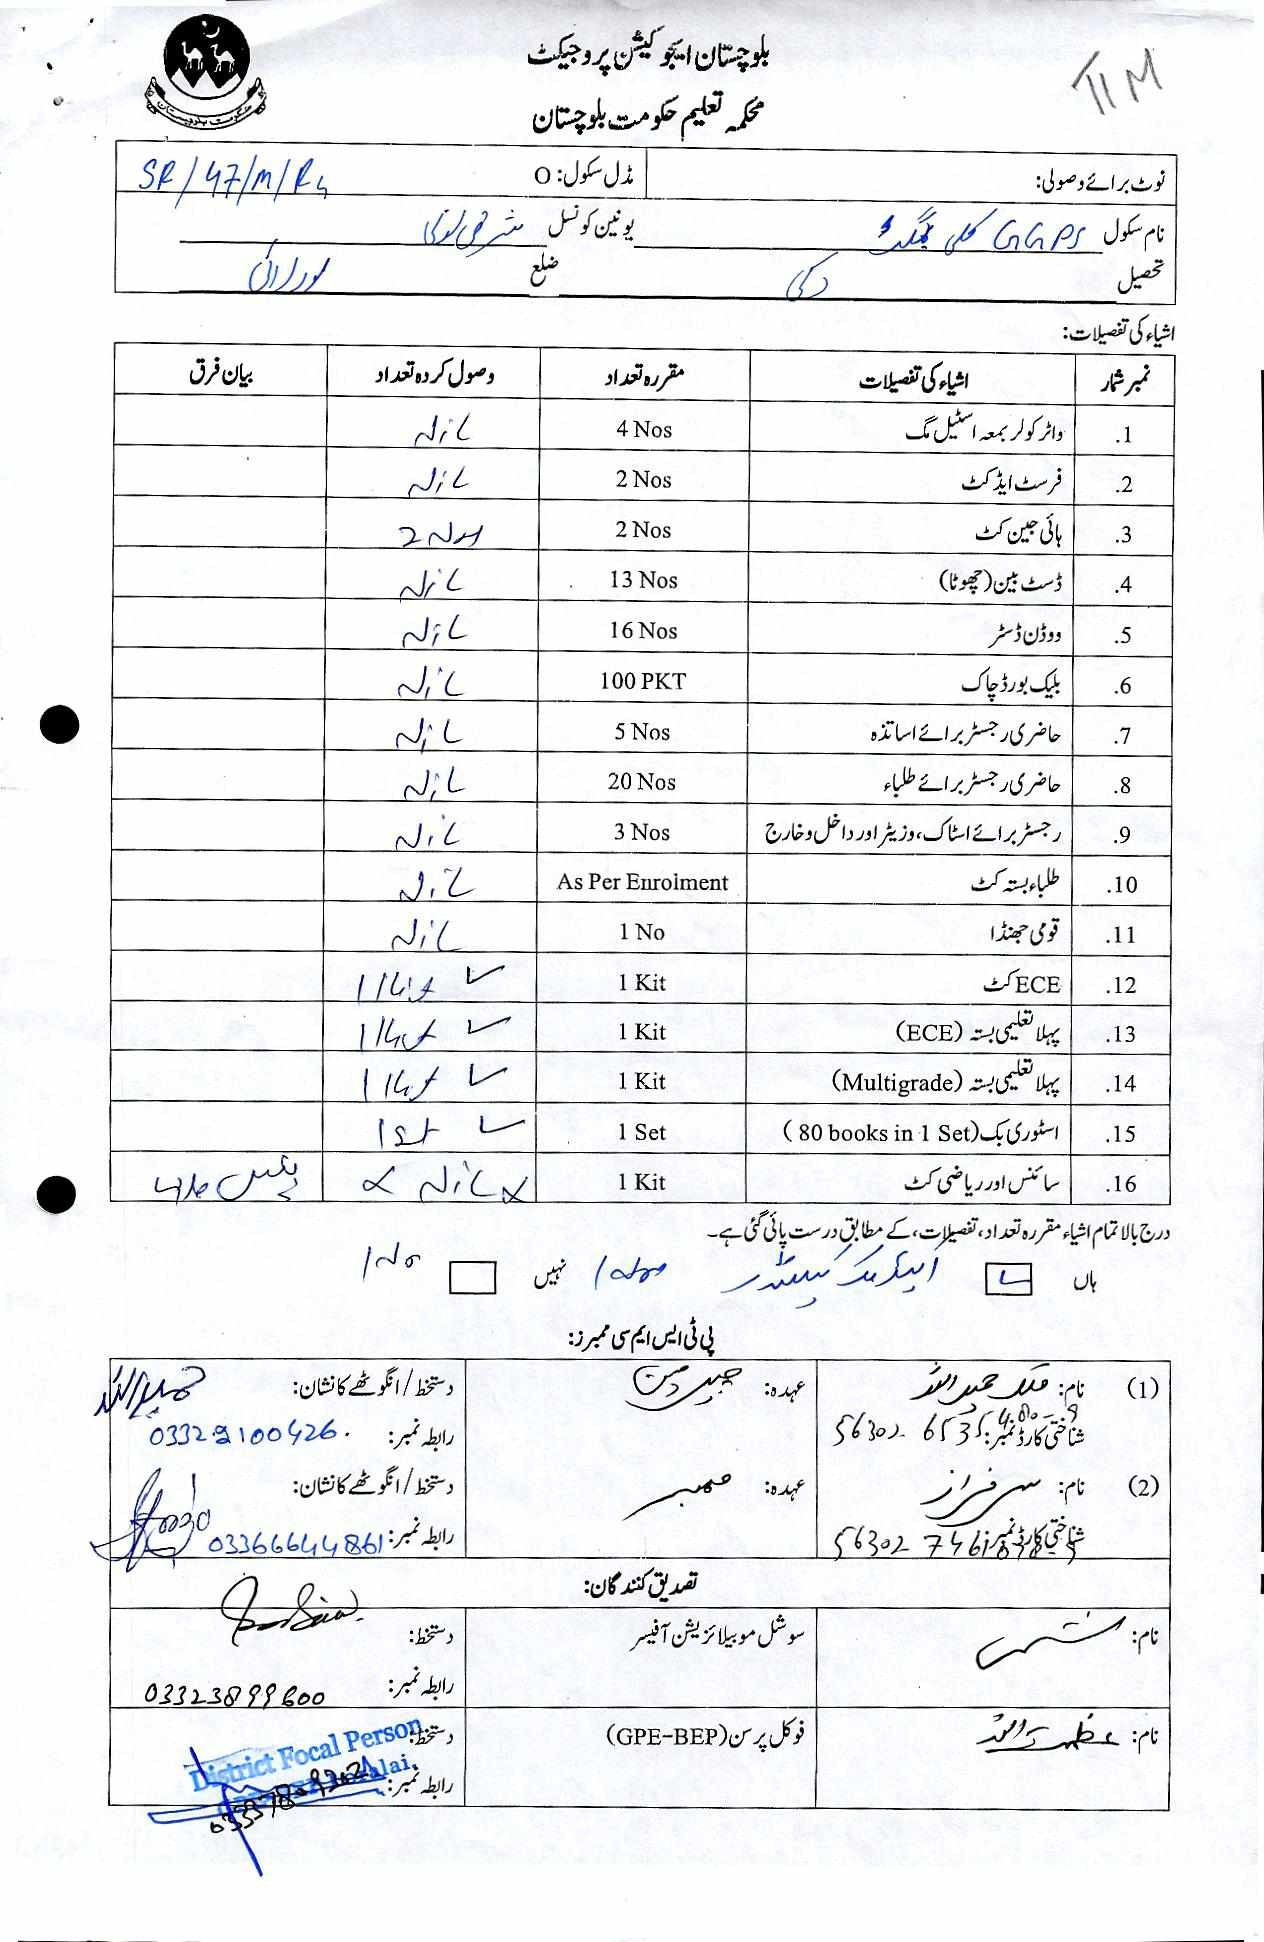 بلوچستان ایجوکیشن پروجیکٹ
TIM
محکمہ تعلیم حکومت بلوچستان
نوٹ برائے وصولی: مڈل سکول: O SR/47/M/R4
نام سکول GGPS کلی یونین کونسل
تحصیل دکی ضلع لورالائی
اشیاء کی تفصیلات:
نمبر شمار اشیاء کی تفصیلات مقررہ تعداد وصول کردہ تعداد بیان فرق
1. واٹر کولر بمعہ اسٹیل مگ 4 Nos Nil
2. فرسٹ ایڈ کٹ 2 Nos Nil
3. ہائی جین کٹ 2 Nos 2 Nos
4. ڈسٹ بین (چھوٹا) 13 Nos Nil
5. ووڈن ڈسٹر 16 Nos Nil
6. بلیک بورڈ چاک 100 PKT Nil
7. حاضری رجسٹر برائے اساتذہ 5 Nos Nil
8. حاضری رجسٹر برائے طلباء 20 Nos Nil
9. رجسٹر برائے اسٹاک، وزیٹر اور داخل و خارج 3 Nos Nil
10. طلباء بستہ کٹ As Per Enrolment Nil
11. قومی جھنڈا 1 No Nil
12. ECE کٹ 1 Kit 1 Kit
13. پہلا تعلیمی بستہ (ECE) 1 Kit 1 Kit
14. پہلا تعلیمی بستہ (Multigrade) 1 Kit 1 Kit
15. اسٹوری بک (80 books in 1 Set) 1 Set 1 Set
16. سائنس اور ریاضی کٹ 1 Kit Nil نہیں ملا
درج بالا تمام اشیاء مقررہ تعداد، تفصیلات، کے مطابق درست پائی گئی ہے۔
ہاں نہیں
پی ٹی ایس ایم سی ممبرز:
(1) نام: ملک حمید اللہ عہدہ: چیئرمین دستخط / انگوٹھے کا نشان: حمید اللہ
شناختی کارڈ نمبر: رابطہ نمبر:
(2) نام: سرفراز عہدہ: ممبر دستخط / انگوٹھے کا نشان:
شناختی کارڈ نمبر: رابطہ نمبر: 03366644861
تصدیق کنندگان:
نام: سوشل موبیلائزیشن آفیسر دستخط:
رابطہ نمبر: 03323899600
نام: عظمت اللہ فوکل پرسن (GPE-BEP) دستخط:
District Focal Person
رابطہ نمبر: